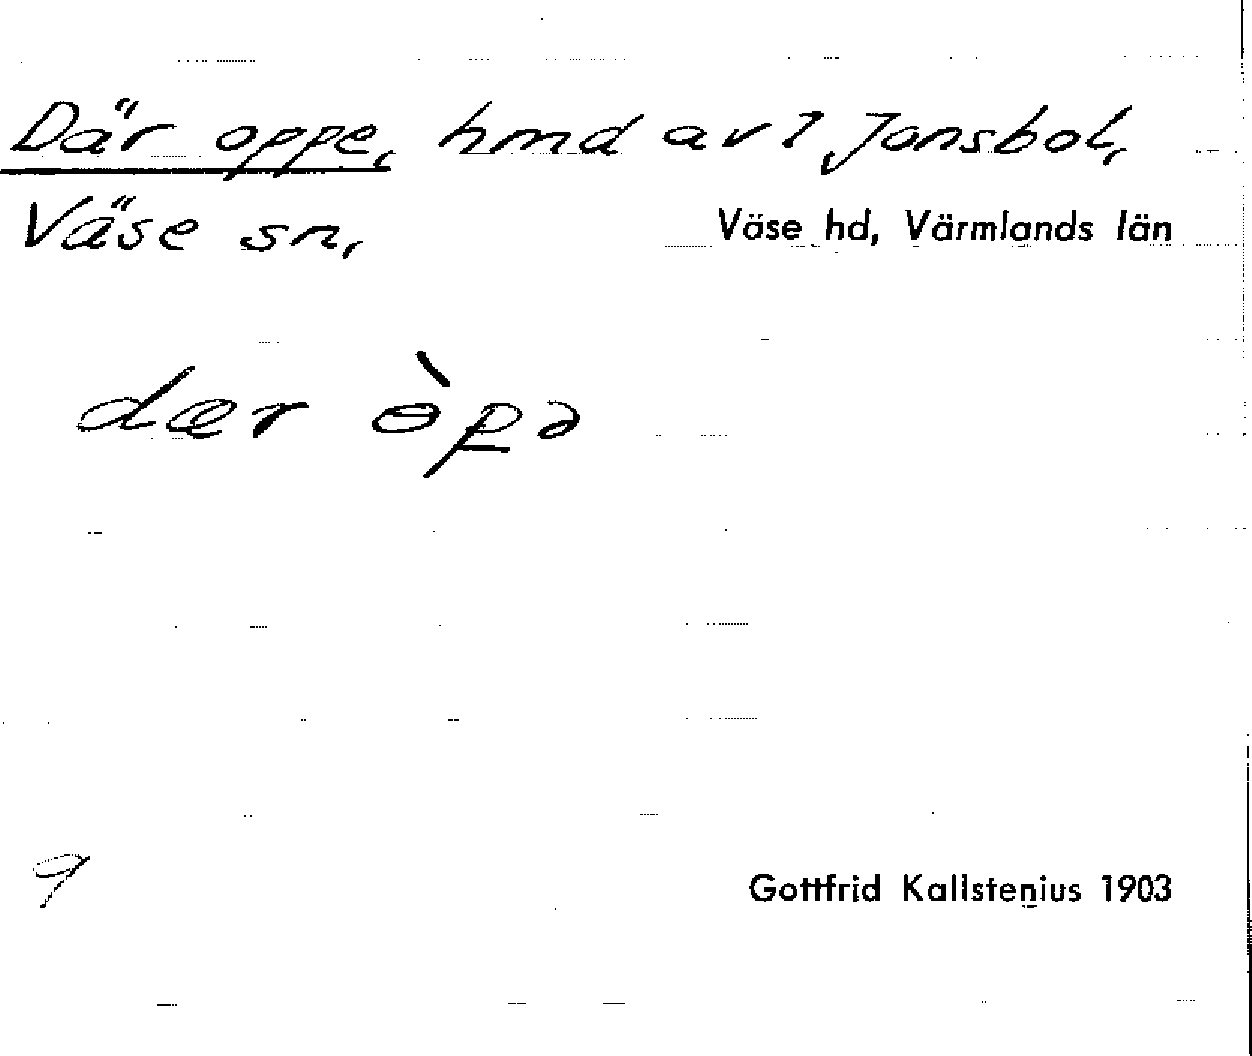 Där oppe, hmd av 1 Jonsbol,
Väse sn, Väse hd, Värmlands län
dær ɵ̀p̲ə
9
Gottfrid Kallstenius 1903